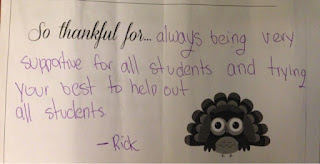 So thankful for... always being very
supportive for all students and trying
your best to help out
all students.
- Rick